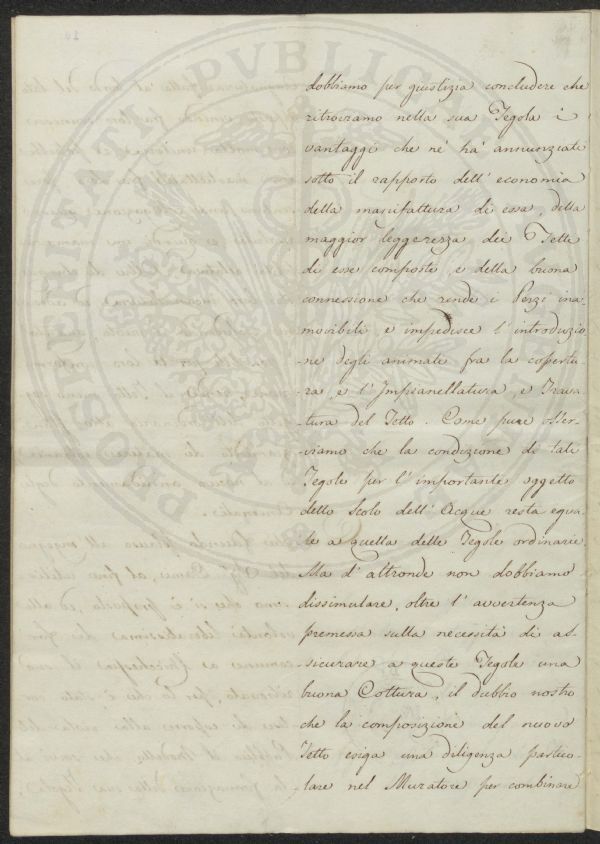 dobbiamo per giustizia concludere che
ritroviamo nella sua Tegola i
vantaggi che ne' ha' annunziati
sotto il rapporto dell' economia
della manifattura di essa, della
maggior leggerezza dei Tetti
di esse composti, e della buona
connessione che rende i Pezzi ina-
movibili e impedisce l' introduzio
-ne degli animali fra la copertu-
-ra, e l' Impianellatura, e Trava-
tura del Tetto. Come pure osser-
viamo che la condizione di tali
Tegole per l' importante oggetto
dello Scolo dell' Acque resta egua-
le a quella delle Tegole ordinarie.
Ma d' altronde non dobbiamo
dissimulare, oltre l' avvertenza
premessa sulla necessità di as-
sicurare a queste Tegole una
buona Cottura, il dubbio nostro
che la composizione del nuovo
Tetto esiga una diligenza partico-
lare nel Muratore per combinare
PROSPERITATI PVBLICAE